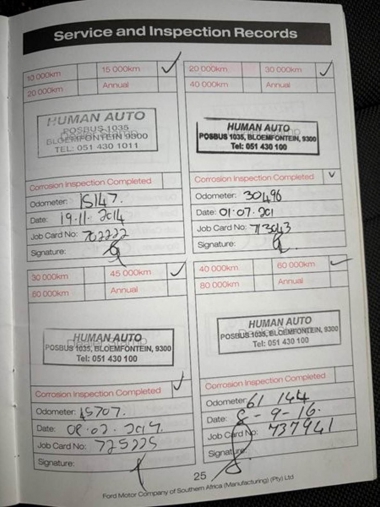 Service and Inspection Records
10 000km 15 000km ✓
20 000km Annual
HUMAN AUTO
POSBUS 1035
BLOEMFONTEIN 9300
TEL: 051 430 1011
Corrosion Inspection Completed
Odometer: 15147.
Date: 19-11-2014
Job Card No: 702222
Signature:
20 000km 30 000km ✓
40 000km Annual
HUMAN AUTO
POSBUS 1035, BLOEMFONTEIN, 9300
Tel: 051 430 100
Corrosion Inspection Completed ✓
Odometer: 30498
Date: 01.07.201
Job Card No: 713043
Signature:
30 000km 45 000km ✓
60 000km Annual
HUMAN AUTO
POSBUS 1035, BLOEMFONTEIN, 9300
Tel: 051 430 100
Corrosion Inspection Completed ✓
Odometer: 45707.
Date: 08.02.
Job Card No: 725225
Signature:
40 000km 60 000km ✓
80 000km Annual
HUMAN AUTO
POSBUS 1035, BLOEMFONTEIN, 9300
Tel: 051 430 100
Corrosion Inspection Completed
Odometer: 61 144
Date: 8-9-16.
Job Card No: 737941
Signature:
25
Ford Motor Company of Southern Africa (Manufacturing) (Pty) Ltd